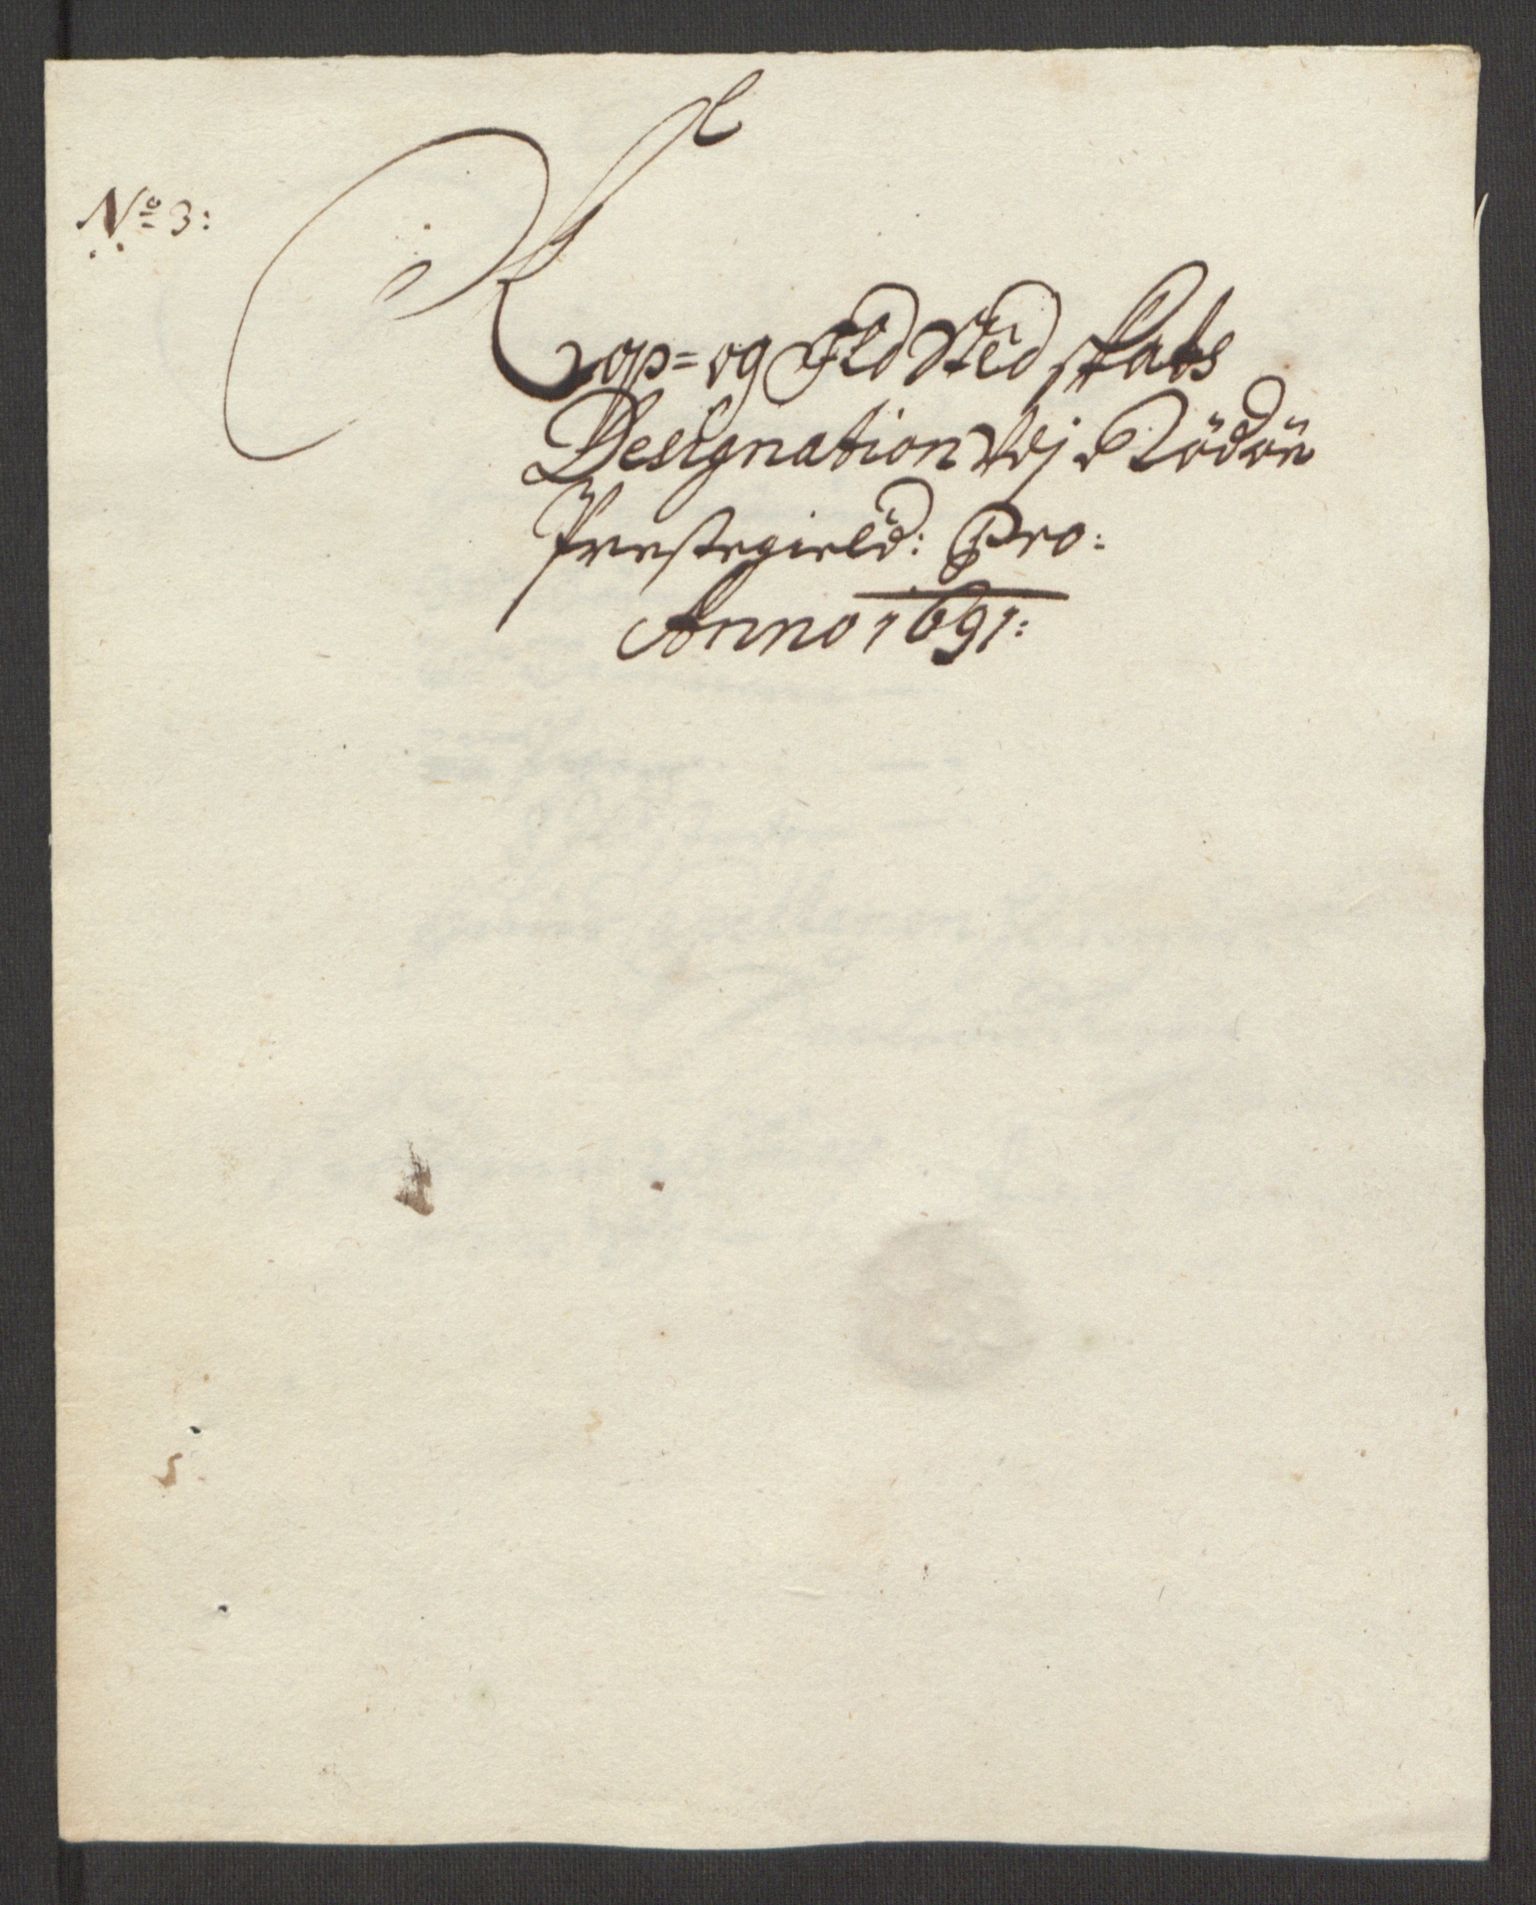 No 3:
Kop= og Ild Sted skats
Designation Udj Rödön
Prestegield: Pro:
Anno 1691: